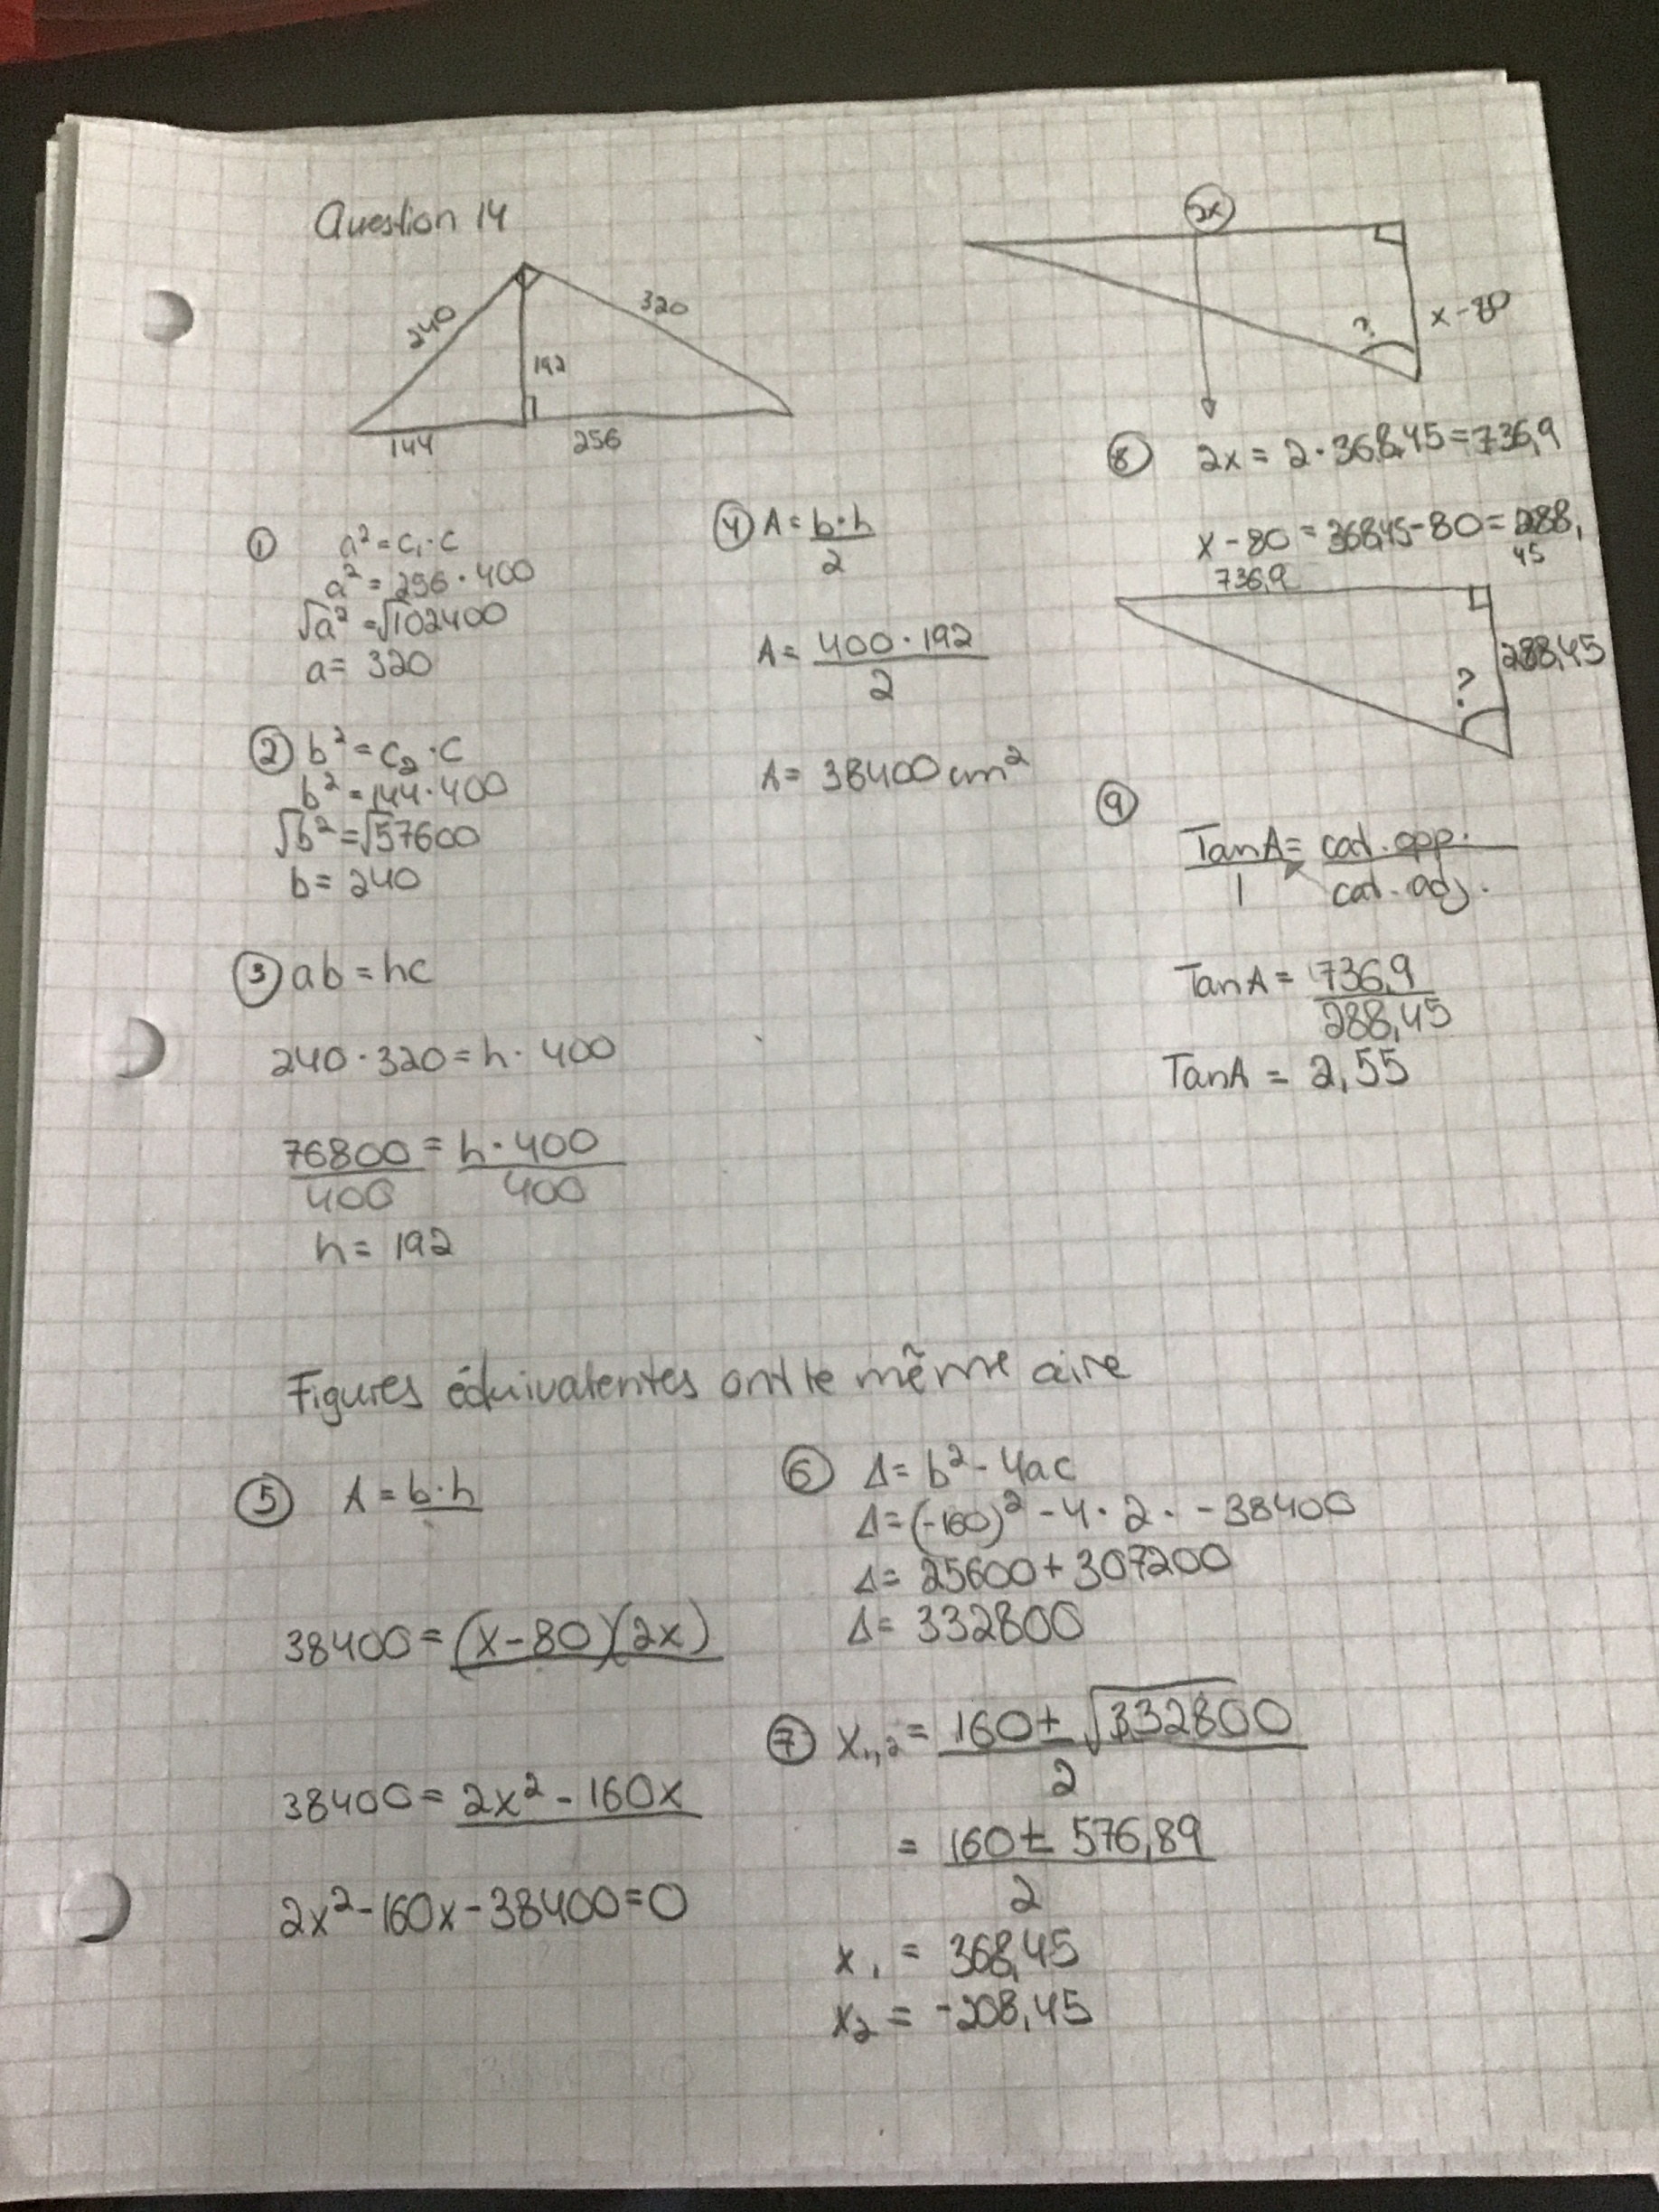 Question 14
240
320
192
144
256
① a² = c₁·c
a² = 256·400
√a² = √102400
a = 320
② b² = c₂·c
b² = 144·400
√b² = √57600
b = 240
③ ab = hc
240·320 = h·400
76800 = h·400
400 400
h = 192
④ A = b·h
2
A = 400·192
2
A = 38400 cm²
2x
?
x-80
⑧ 2x = 2·368,45 = 736,9
x-80 = 368,45-80 = 288,
45
736,9
288,45
?
⑨
TanA = cat. opp.
1 cat. adj.
TanA = 736,9
288,45
TanA = 2,55
Figures équivalentes ont le même aire
⑤ A = b·h
38400 = (x-80)(2x)
38400 = 2x² - 160x
2x² - 160x - 38400 = 0
⑥ Δ = b² - 4ac
Δ = (-160)² - 4·2·-38400
Δ = 25600 + 307200
Δ = 332800
⑦ x₁,₂ = 160 ± √332800
2
= 160 ± 576,89
2
x₁ = 368,45
x₂ = -208,45